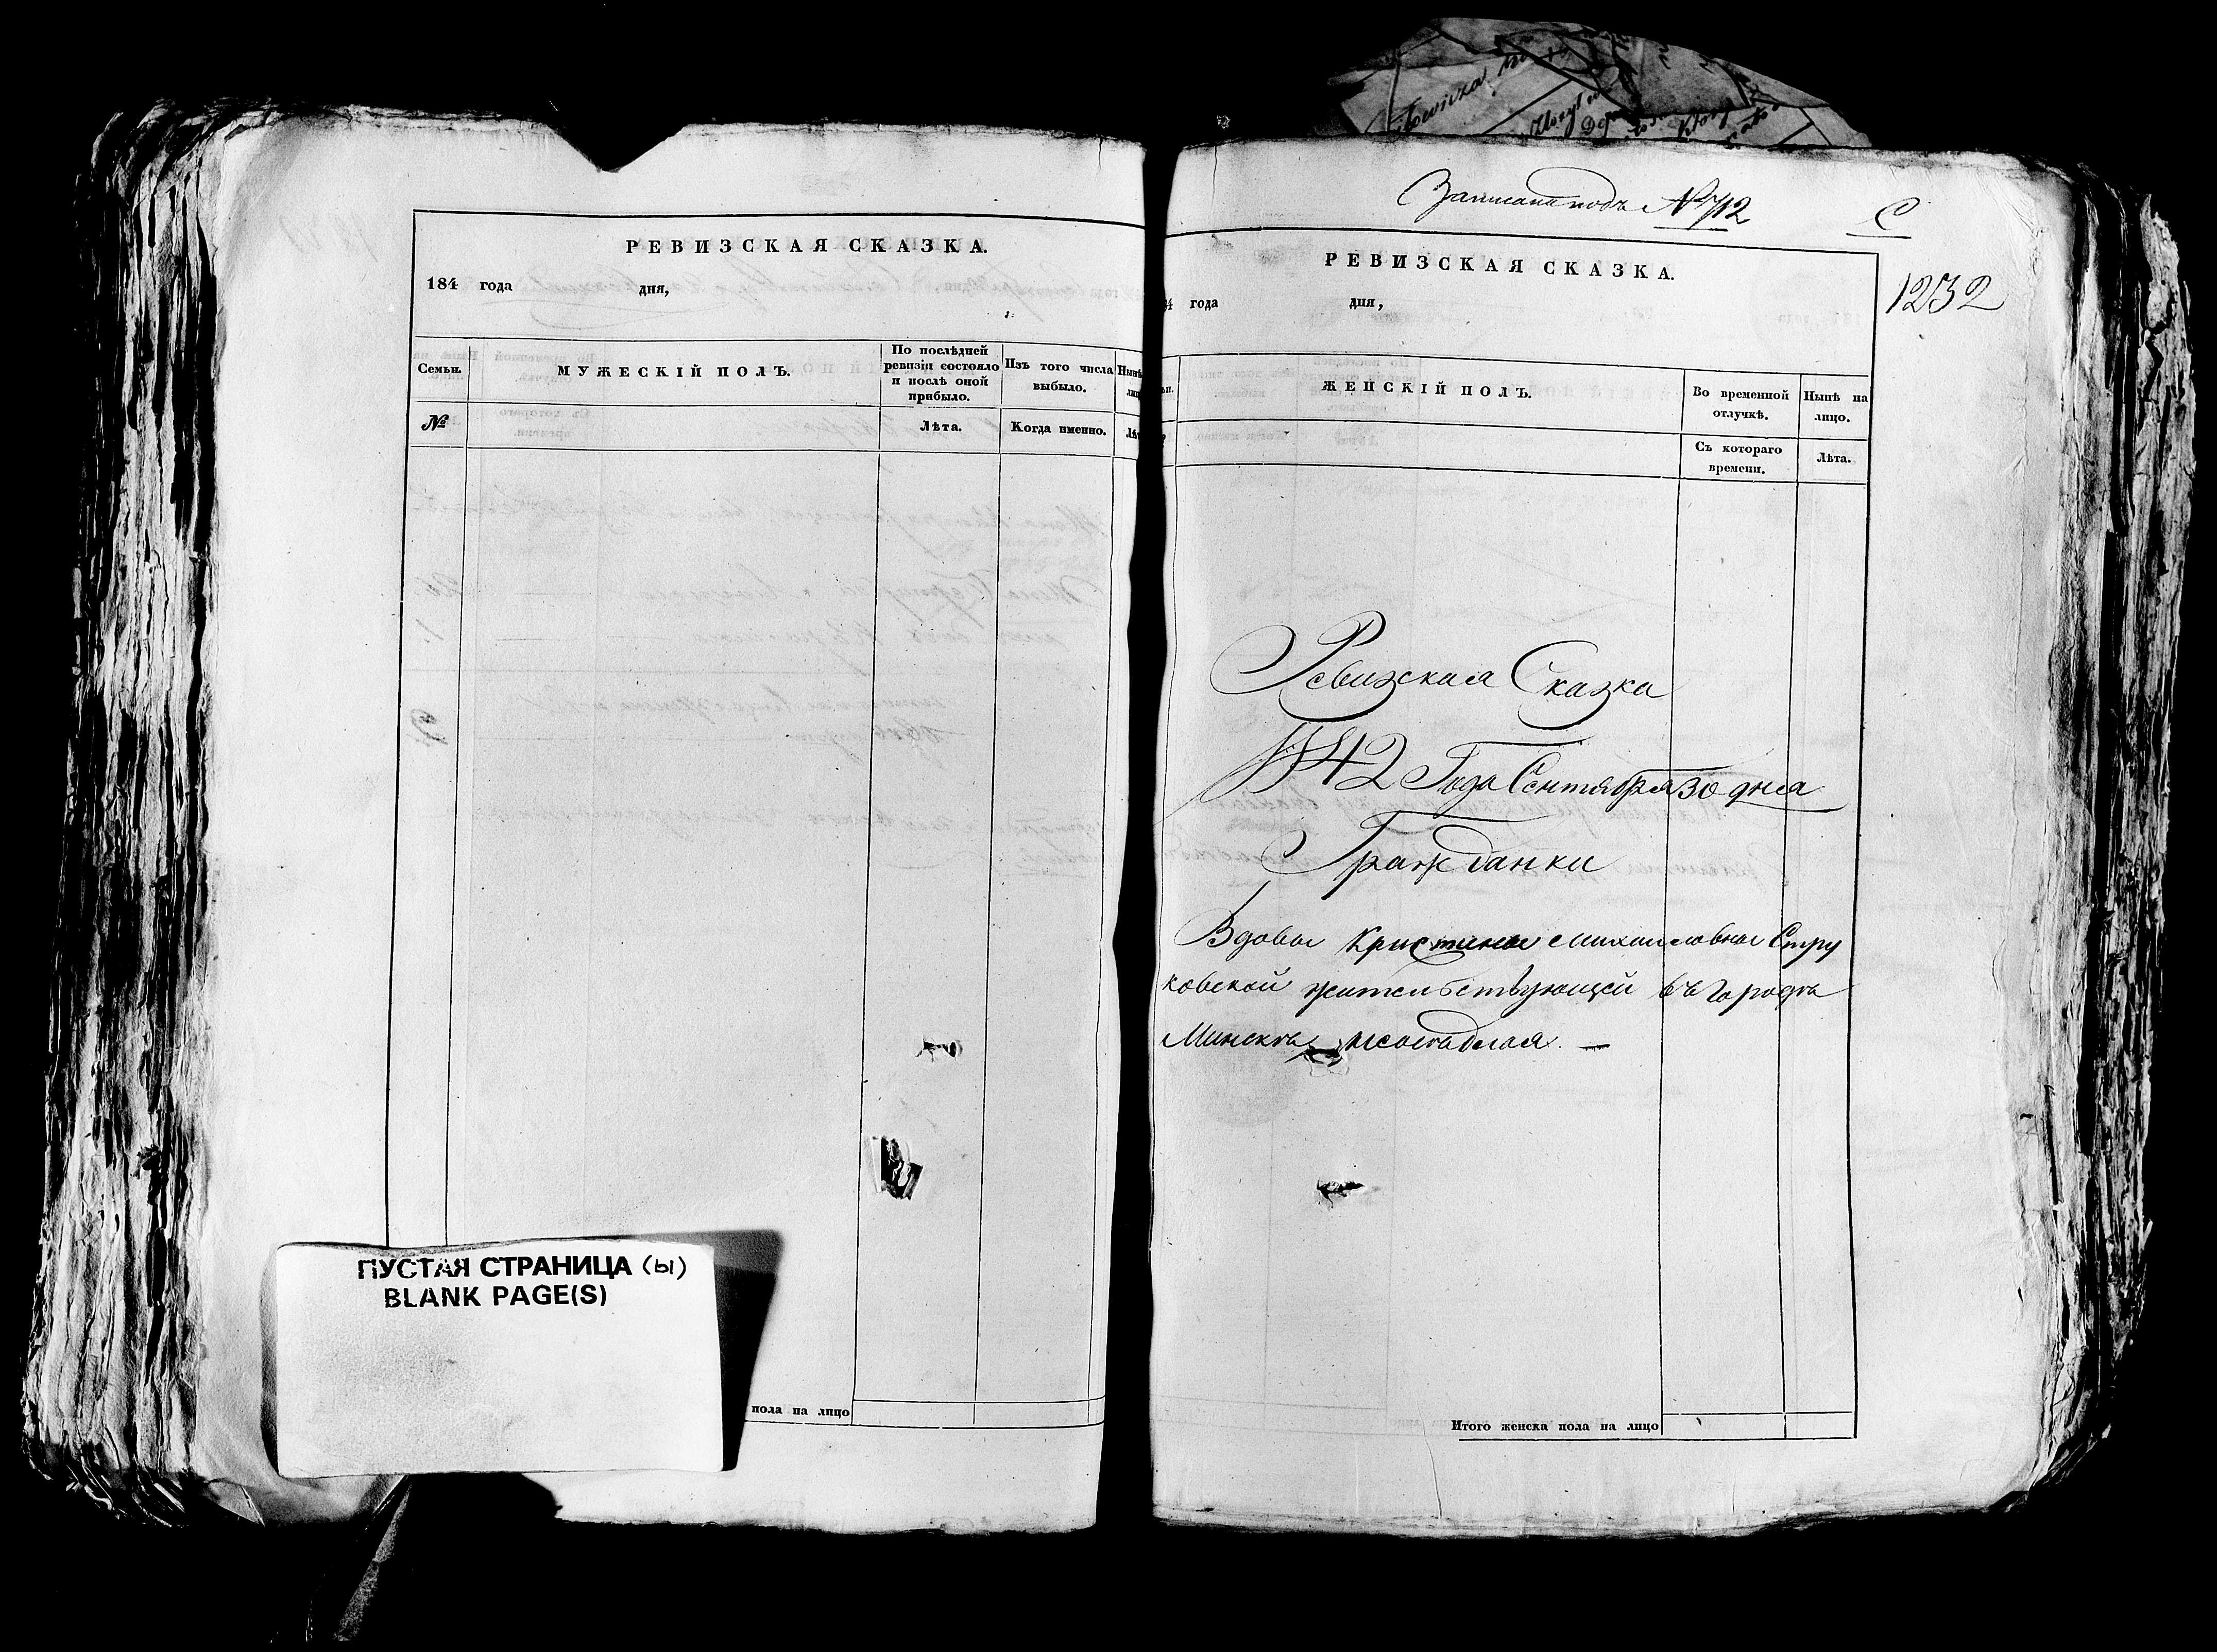 РЕВИЗСКАЯ СКАЗКА.
184 года дня,
Семьи.
МУЖЕСКІЙ ПОЛЪ.
По послѣдней
ревизіи состояло
и послѣ оной
прибыло.
Изъ того числа
выбыло.
№
Лѣта.
Когда именно.
ПУСТАЯ СТРАНИЦА (ы)
BLANK PAGE(S)
пола на лицо
Записана подъ № 712
С
1232
РЕВИЗСКАЯ СКАЗКА.
4 года дня,
ЖЕНСКІЙ ПОЛЪ.
Во временной
отлучкѣ.
Нынѣ на
лицо.
Съ котораго
времени.
Лѣта.
Ревизская Сказка
1842 Года Сентября 30 дня
Гражданки
Вдовы Кристины Михайловны Стру
ковской жительствующей въ городѣ
Минскѣ
Итого женска пола на лицо